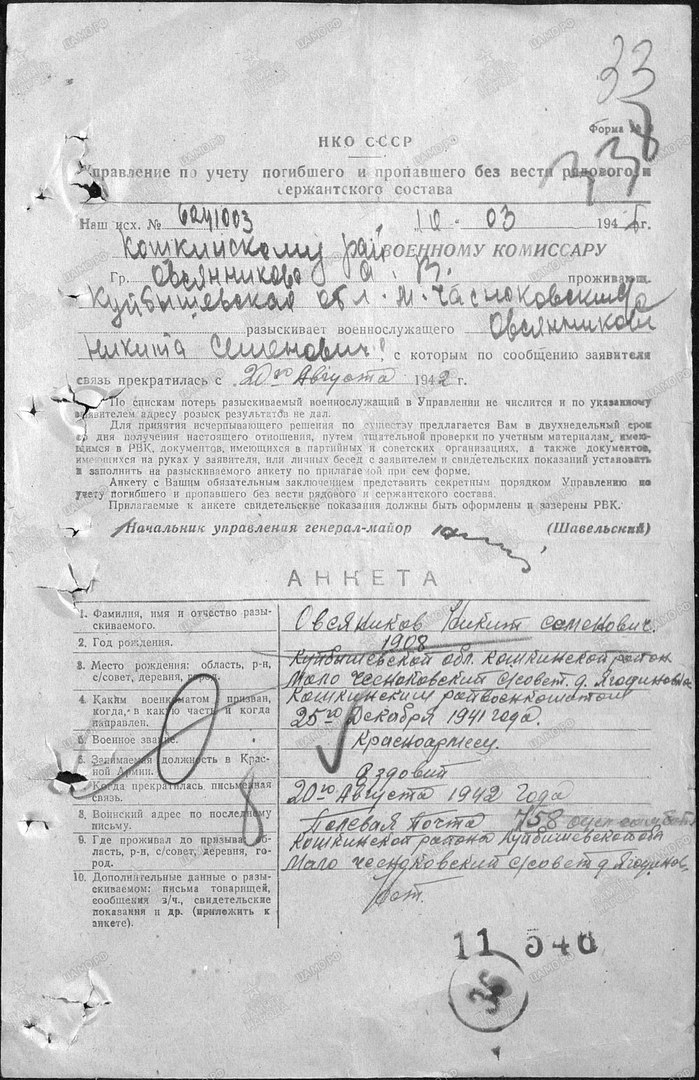 33
Форма №
338
НКО СССР
Управление по учету погибшего и пропавшего без вести рядового и
сержантского состава
Наш исх. № 6241003 10 - 03 194 г.
Кошкинскому рай ВОЕННОМУ КОМИССАРУ
Гр. Овсянникова А. В. проживающ.
Куйбышевская обл. М. Чесноковский
разыскивает военнослужащего Овсянникова
Никита Семенович, с которым по сообщению заявителя
связь прекратилась с 20го Августа 1942 г.
По спискам потерь разыскиваемый военнослужащий в Управлении не числится и по указанному
заявителем адресу розыск результатов не дал.
Для принятия исчерпывающего решения по существу предлагается Вам в двухнедельный срок
со дня получения настоящего отношения, путем тщательной проверки по учетным материалам, имею-
щимся в РВК, документов, имеющихся в партийных и советских организациях, а также документов,
имеющихся на руках у заявителя, или личных бесед с заявителем и свидетельских показаний установить
и заполнить на разыскиваемого анкету по прилагаемой при сем форме.
Анкету с Вашим обязательным заключением представить секретным порядком Управлению по
учету погибшего и пропавшего без вести рядового и сержантского состава.
Прилагаемые к анкете свидетельские показания должны быть оформлены и заверены РВК.
Начальник управления генерал-майор (Шавельский)
АНКЕТА
1. Фамилия, имя и отчество разы-
скиваемого.
Овсяников Никит семенович.
2. Год рождения.
1908
3. Место рождения: область, р-н,
с/совет, деревня, город.
Куйбышевской обл. Кошкинской район
Мало Чесноковский с/совет. д. Ягодиновка
4. Каким военкоматом призван,
когда, в какую часть и когда
направлен.
Кошкинским райвоенкоматом
25го Декабря 1941 года.
5. Военное звание.
Красноармеец.
6. Занимаемая должность в Крас-
ной Армии.
Ездовит
7. Когда прекратилась письменная
связь.
20го Августа 1942 года
8. Воинский адрес по последнему
письму.
Полевая почта 758
9. Где проживал до призыва: об-
ласть, р-н, с/совет, деревня, го-
род.
Кошкинской района Куйбышевской об
Мало чесноковский с/совет д Ягодинов.
10. Дополнительные данные о разы-
скиваемом: письма товарищей,
сообщения з/ч., свидетельские
показания и др. (приложить к
анкете).
8
11 540
36